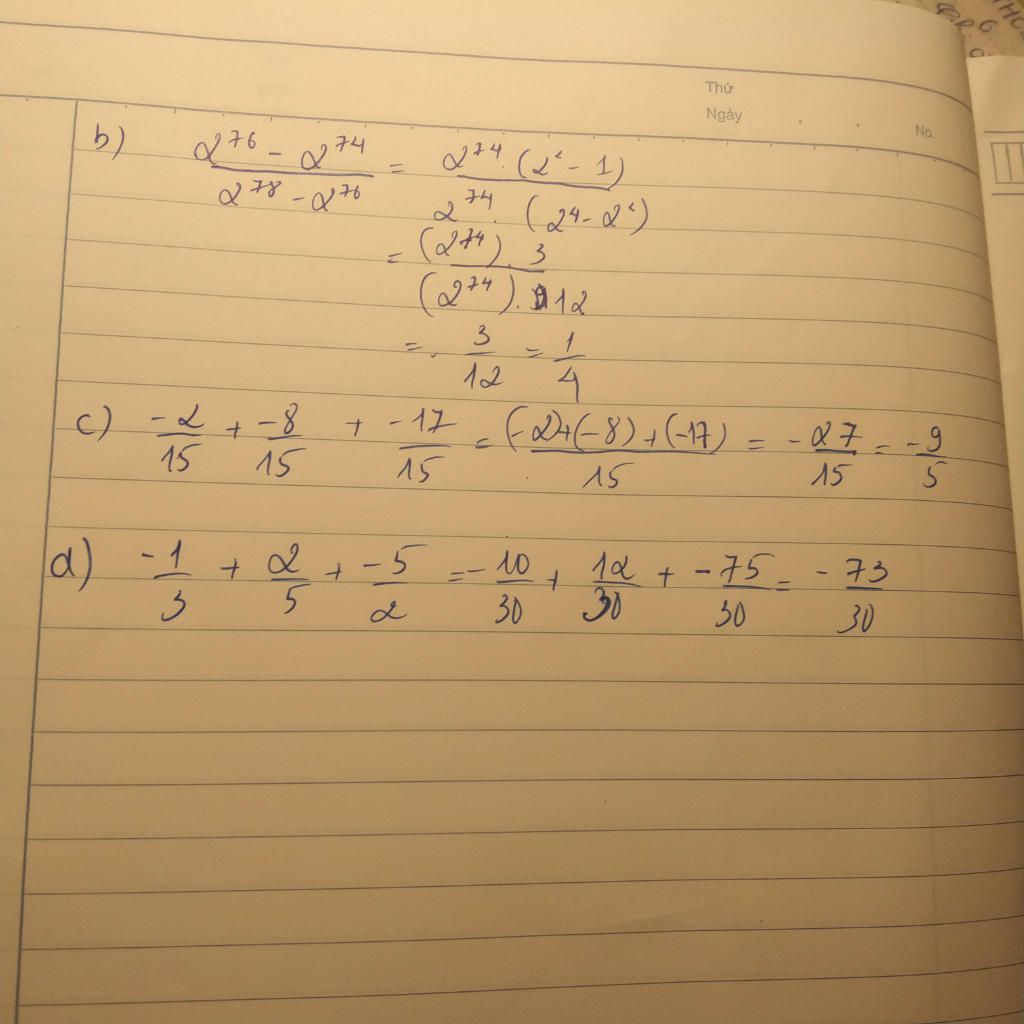 Thứ
Ngày
No.
b) (2^76 - 2^74)/(2^78 - 2^76) = (2^74 . (2^2 - 1))/(2^74 . (2^4 - 2^2))
= ((2^74) . 3)/((2^74) . 12)
= . 3/12 = 1/4
c) -2/15 + -8/15 + -17/15 = ((-2)+(-8)+(-17))/15 = -27/15 = -9/5
d) -1/3 + 2/5 + -5/2 = -10/30 + 12/30 + -75/30 = -73/30